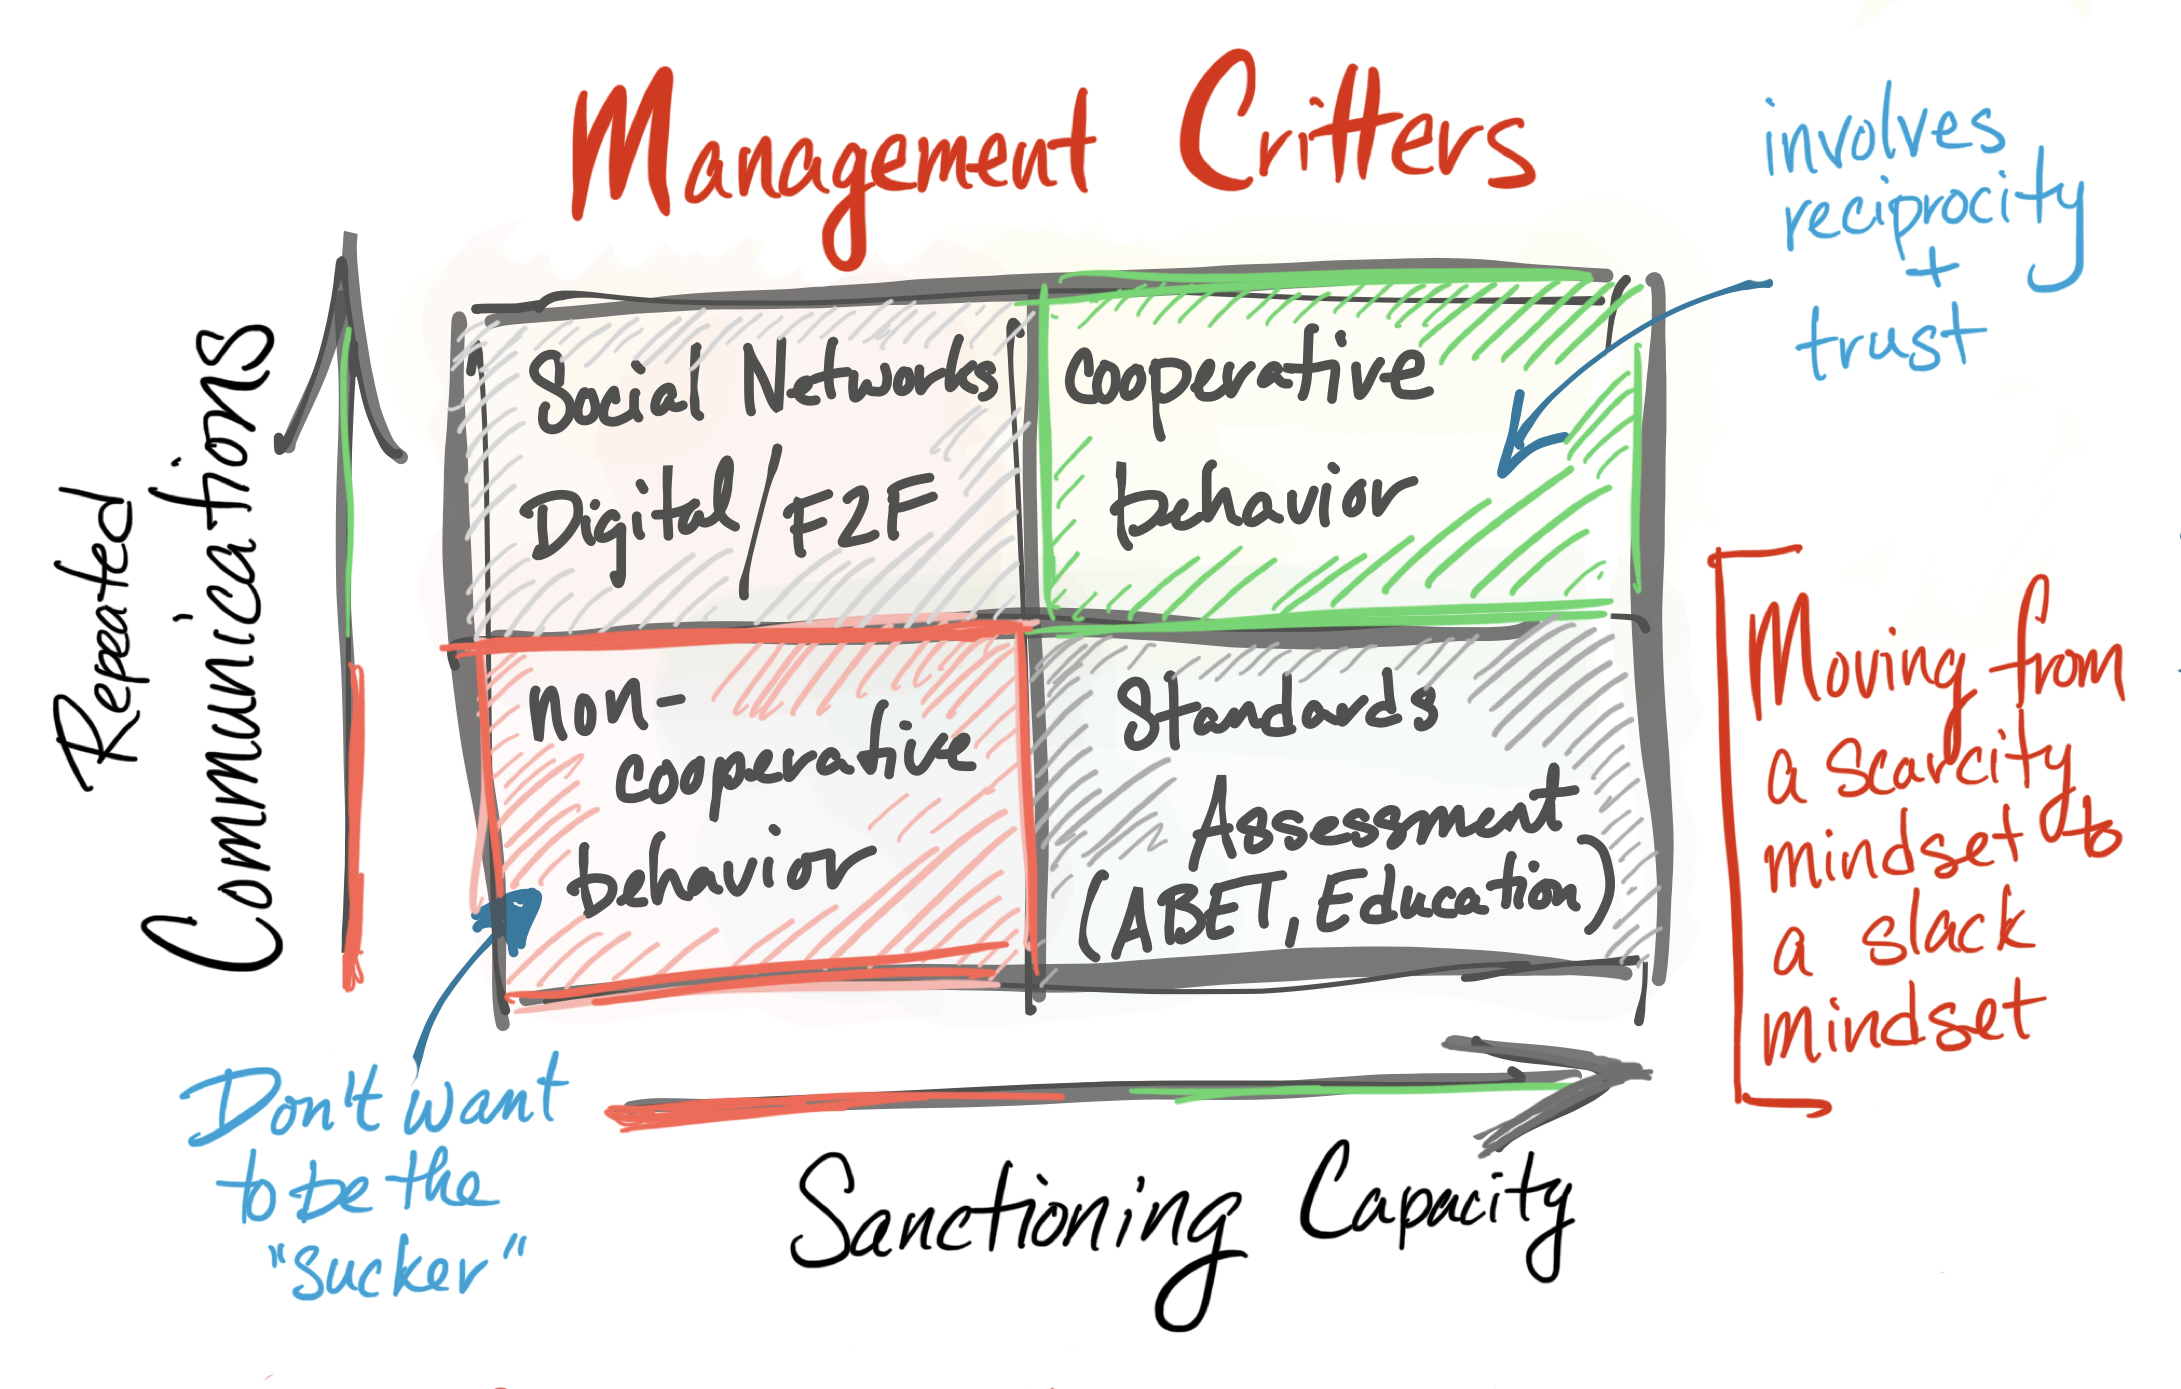 Management Critters
involves
reciprocity
+
trust
Repeated
Communications
Social Networks
Digital/F2F
cooperative
behavior
non-
cooperative
behavior
Standards
Assessment
(ABET, Education)
Moving from
a scarcity
mindset to
a slack
mindset
Don't want
to be the
"sucker"
Sanctioning Capacity